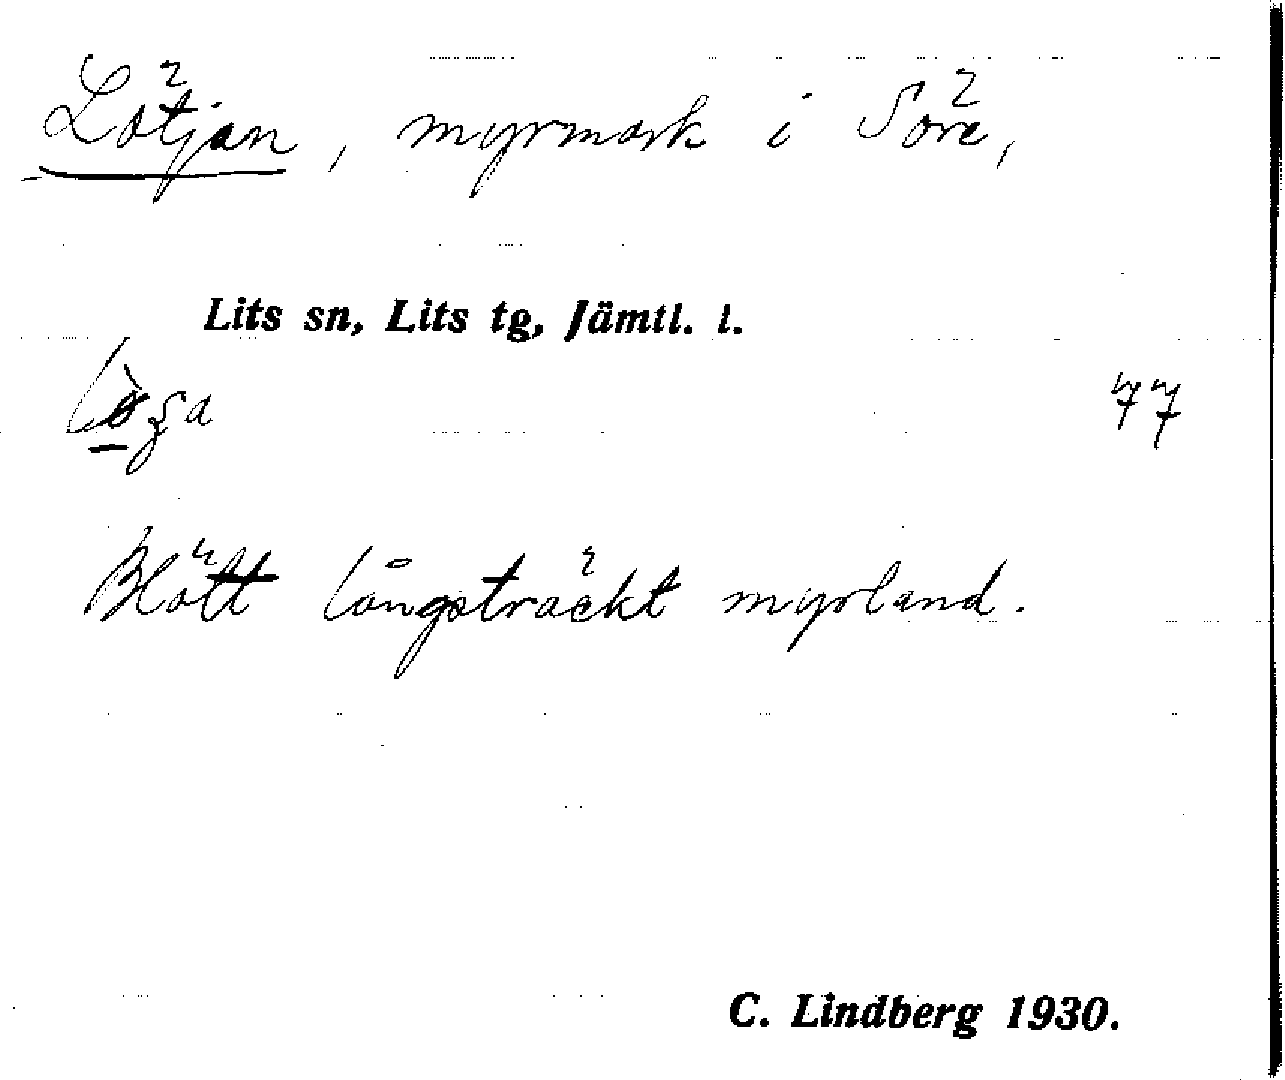 Lötjan, myrmark i Söre,
Lits sn, Lits tg, Jämtl. l.
77
Blött långsträckt myrland.
C. Lindberg 1930.